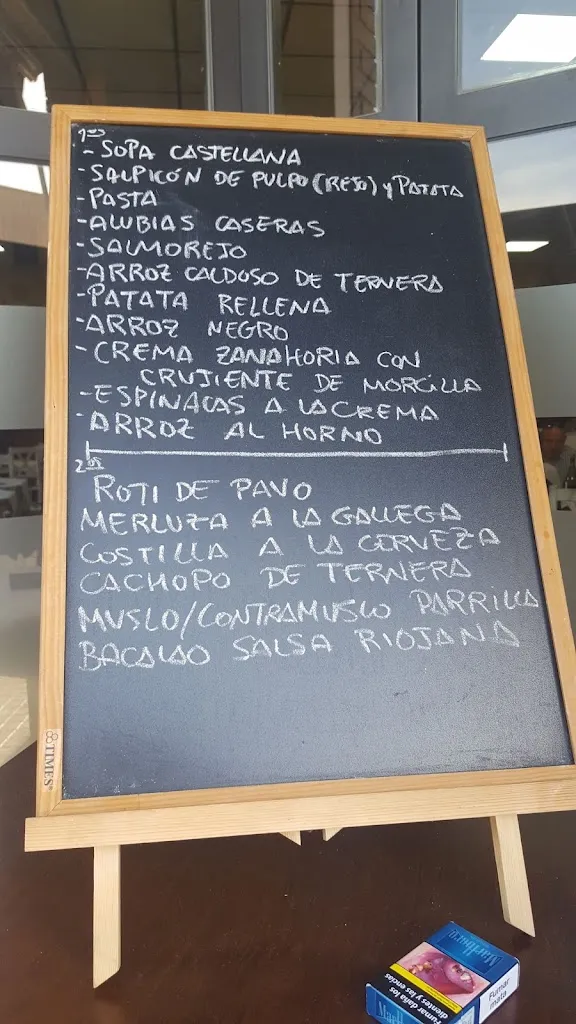 1os
- SOPA CASTELLANA
- SALPICÓN DE PULPO (REJO) y PATATA
- PASTA
- ALUBIAS CASERAS
- SALMOREJO
- ARROZ CALDOSO DE TERNERA
- PATATA RELLENA
- ARROZ NEGRO
- CREMA ZANAHORIA CON
CRUJIENTE DE MORCILLA
- ESPINACAS A LA CREMA
- ARROZ AL HORNO
2os
ROTI DE PAVO
MERLUZA A LA GALLEGA
COSTILLA A LA CERVEZA
CACHOPO DE TERNERA
MUSLO/CONTRAMUSLO PARRILLA
BACALAO SALSA RIOJANA
TIMES
Marlboro
Fumar daña los
dientes y las encías
Fumar
mata